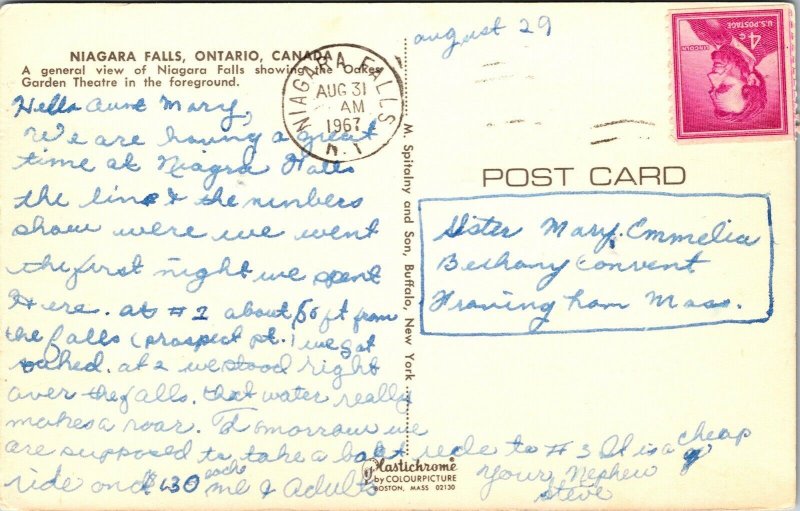 NIAGARA FALLS, ONTARIO, CANADA
A general view of Niagara Falls showing the Oakes
Garden Theatre in the foreground.
august 29
NIAGARA FALLS
AUG 31
AM
1967
N.Y.
U.S. POSTAGE
4¢
LINCOLN
Hello Aunt Mary,
We are having a great
time at Niagra Falls
the line & the numbers
show were we went
the first night we spent
Here. at #2 about 50 ft from
the falls (prospect pt.) we got
soaked. at 2 we stood right
over the falls. that water really
makes a roar. Tomorrow we
are supposed to take a boat ride to #3 It is a cheap
ride only each me & adults
Your Nephew
Steve
M. Spitalny and Son, Buffalo, New York
POST CARD
Sister Mary Emmelia
Bethany Convent
Framingham Mass.
Plastichrome
by COLOURPICTURE
BOSTON, MASS 02130